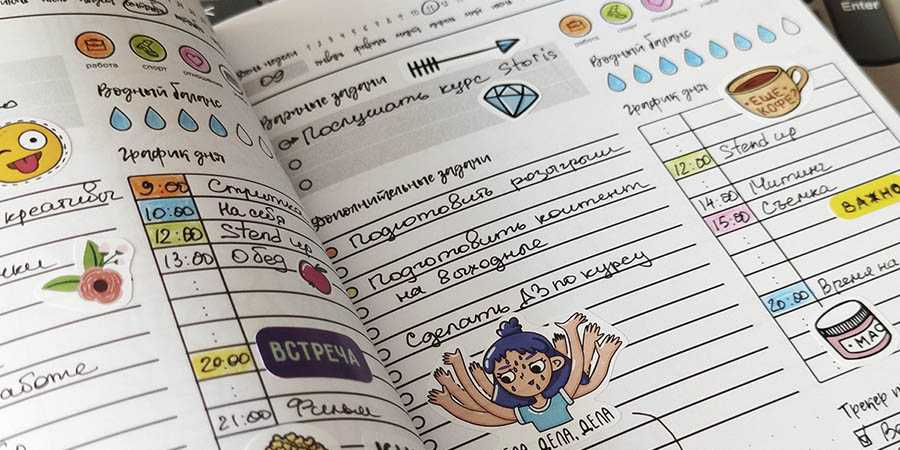 работа
спорт
отношения
Водный баланс
График дня
креативы
9:00 Стрижка
10:00 На себя
12:00 Stend up
13:00 Обед
20:00 ВСТРЕЧА
21:00 Фильм
работе
Важные задачи
Послушать курс Storis
Дополнительные задачи
Подготовить розыгрыш
Подготовить контент
на выходные
Сделать ДЗ по курсу
ДЕЛА, ДЕЛА
работа
спорт
Водный баланс
График дня
ЕЩЕ
КОФЕ?
12:00 Stend up
14:00 Митинг
15:00 Съемка
ВАЖНО
20:00 Время на
МАС
Трекер
Enter